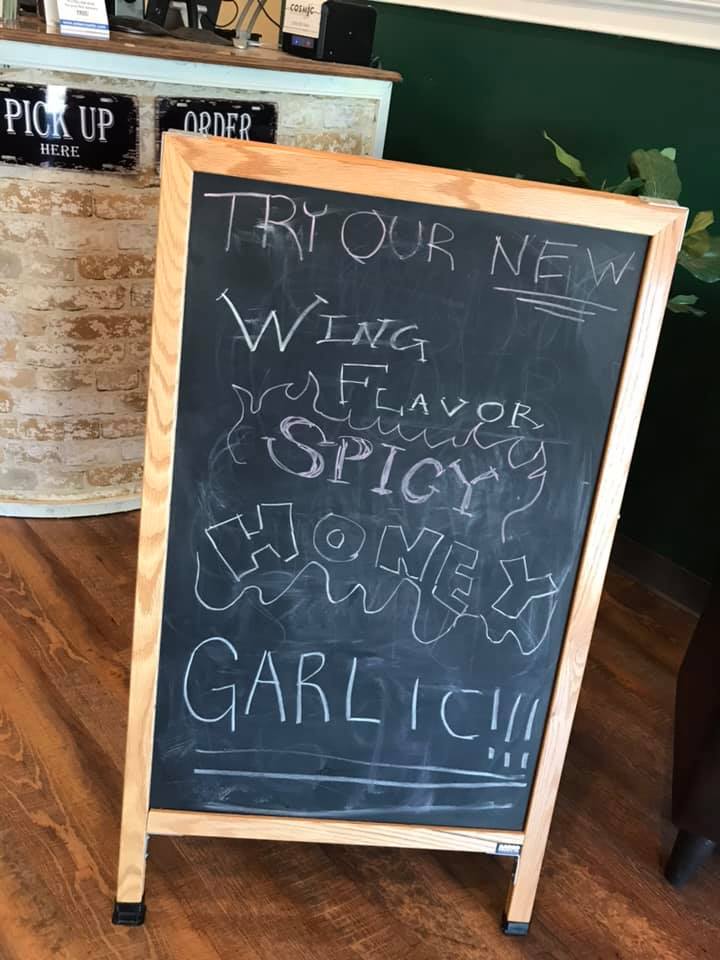 COSMIC
PICK UP
HERE
ORDER
TRY OUR NEW
WING
FLAVOR
SPICY
HONEY
GARLIC!!!